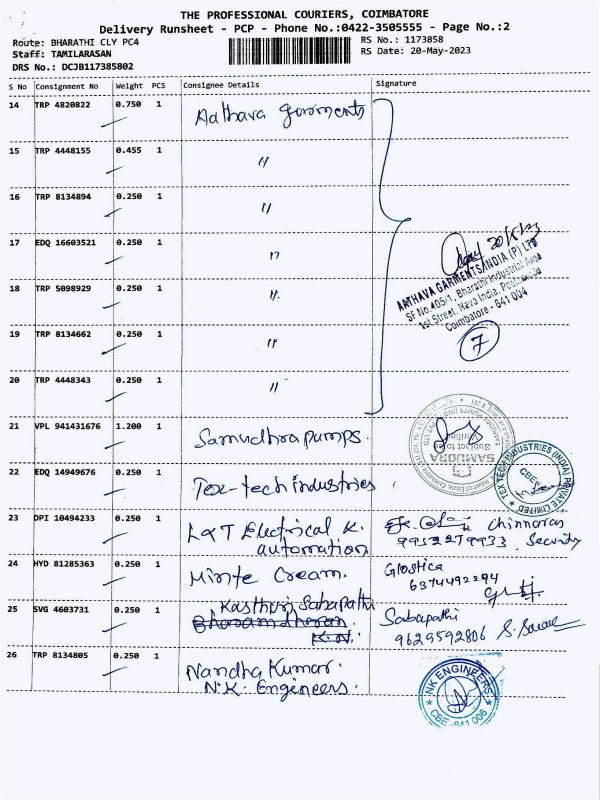 THE PROFESSIONAL COURIERS, COIMBATORE
Delivery Runsheet - PCP - Phone No.:0422-3505555 - Page No.:2
Route: BHARATHI CLY PC4
Staff: TAMILARASAN
DRS No.: DCJB117385802
RS No.: 1173858
RS Date: 20-May-2023
S No Consignment No Weight PCS Consignee Details Signature
14 TRP 4820822 0.750 1 Aathava garments
15 TRP 4448155 0.455 1 "
16 TRP 8134894 0.250 1 "
17 EDQ 16603521 0.250 1 "
18 TRP 5098929 0.250 1 "
19 TRP 8134662 0.250 1 "
20 TRP 4448343 0.250 1 "
AATHAVA GARMENTS INDIA (P) LTD
SF No.405/1, Bharathi Industrial Area
1st Street, Nava India,
Coimbatore - 641 004
7
21 VPL 941431676 1.200 1 Samudhra pumps.
SAMUDRA
22 EDQ 14949676 0.250 1 Tex-tech industries
TEX TECH INDUSTRIES (INDIA) PRIVATE LIMITED
CBE
23 DPI 10494233 0.250 1 L&T Electrical &
automation
Security
24 HYD 81285363 0.250 1 Minte Cream.
6374492294
25 SVG 4603731 0.250 1 Kasthuri Sabapathi
K.N.
Sabapathi
9629592806
26 TRP 8134805 0.250 1 Nandha Kumar.
N.K. Engineers.
NK ENGINEERS
CBE -641 006